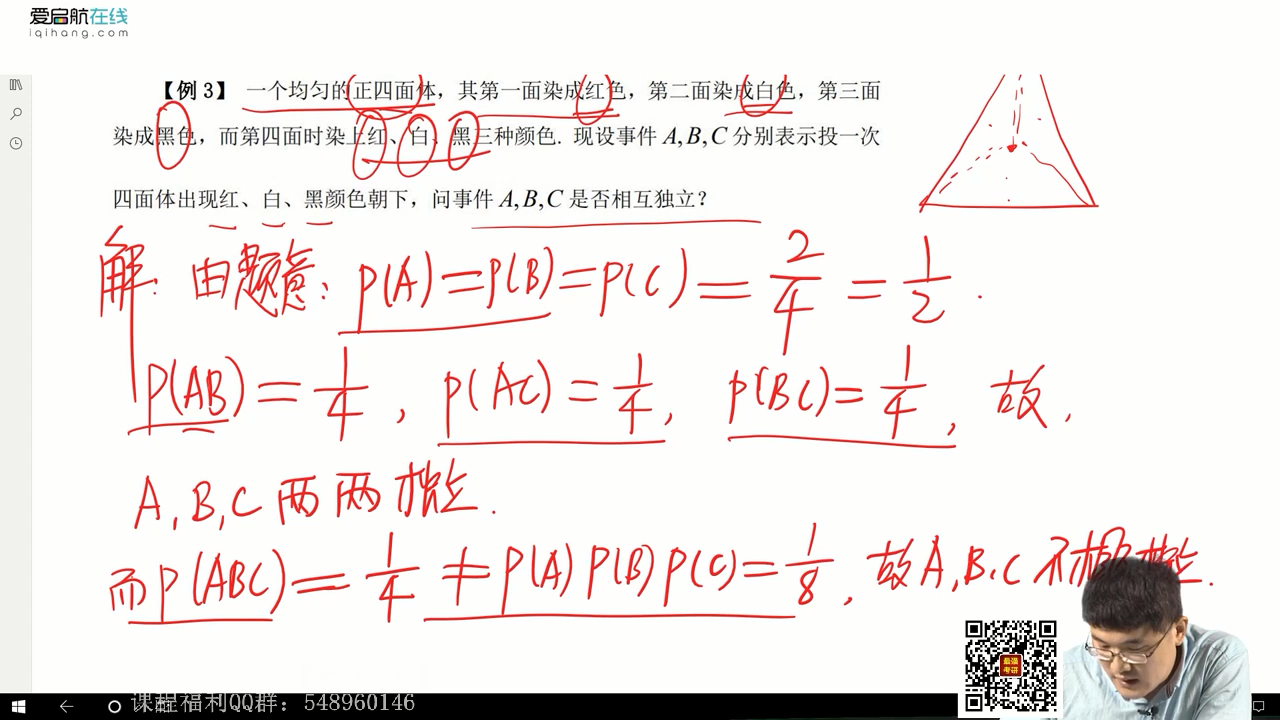 爱启航在线
iqihang.com
【例 3】 一个均匀的正四面体，其第一面染成红色，第二面染成白色，第三面
染成黑色，而第四面时染上红、白、黑三种颜色. 现设事件 A,B,C 分别表示投一次
四面体出现红、白、黑颜色朝下，问事件 A,B,C 是否相互独立？
解: 由题意: P(A)=P(B)=P(C)=2/4=1/2.
P(AB)=1/4, P(AC)=1/4, P(BC)=1/4, 故,
A,B,C两两独立.
而P(ABC)=1/4≠P(A)P(B)P(C)=1/8, 故A,B,C不相互独立.
最强考研
课程福利QQ群：548960146